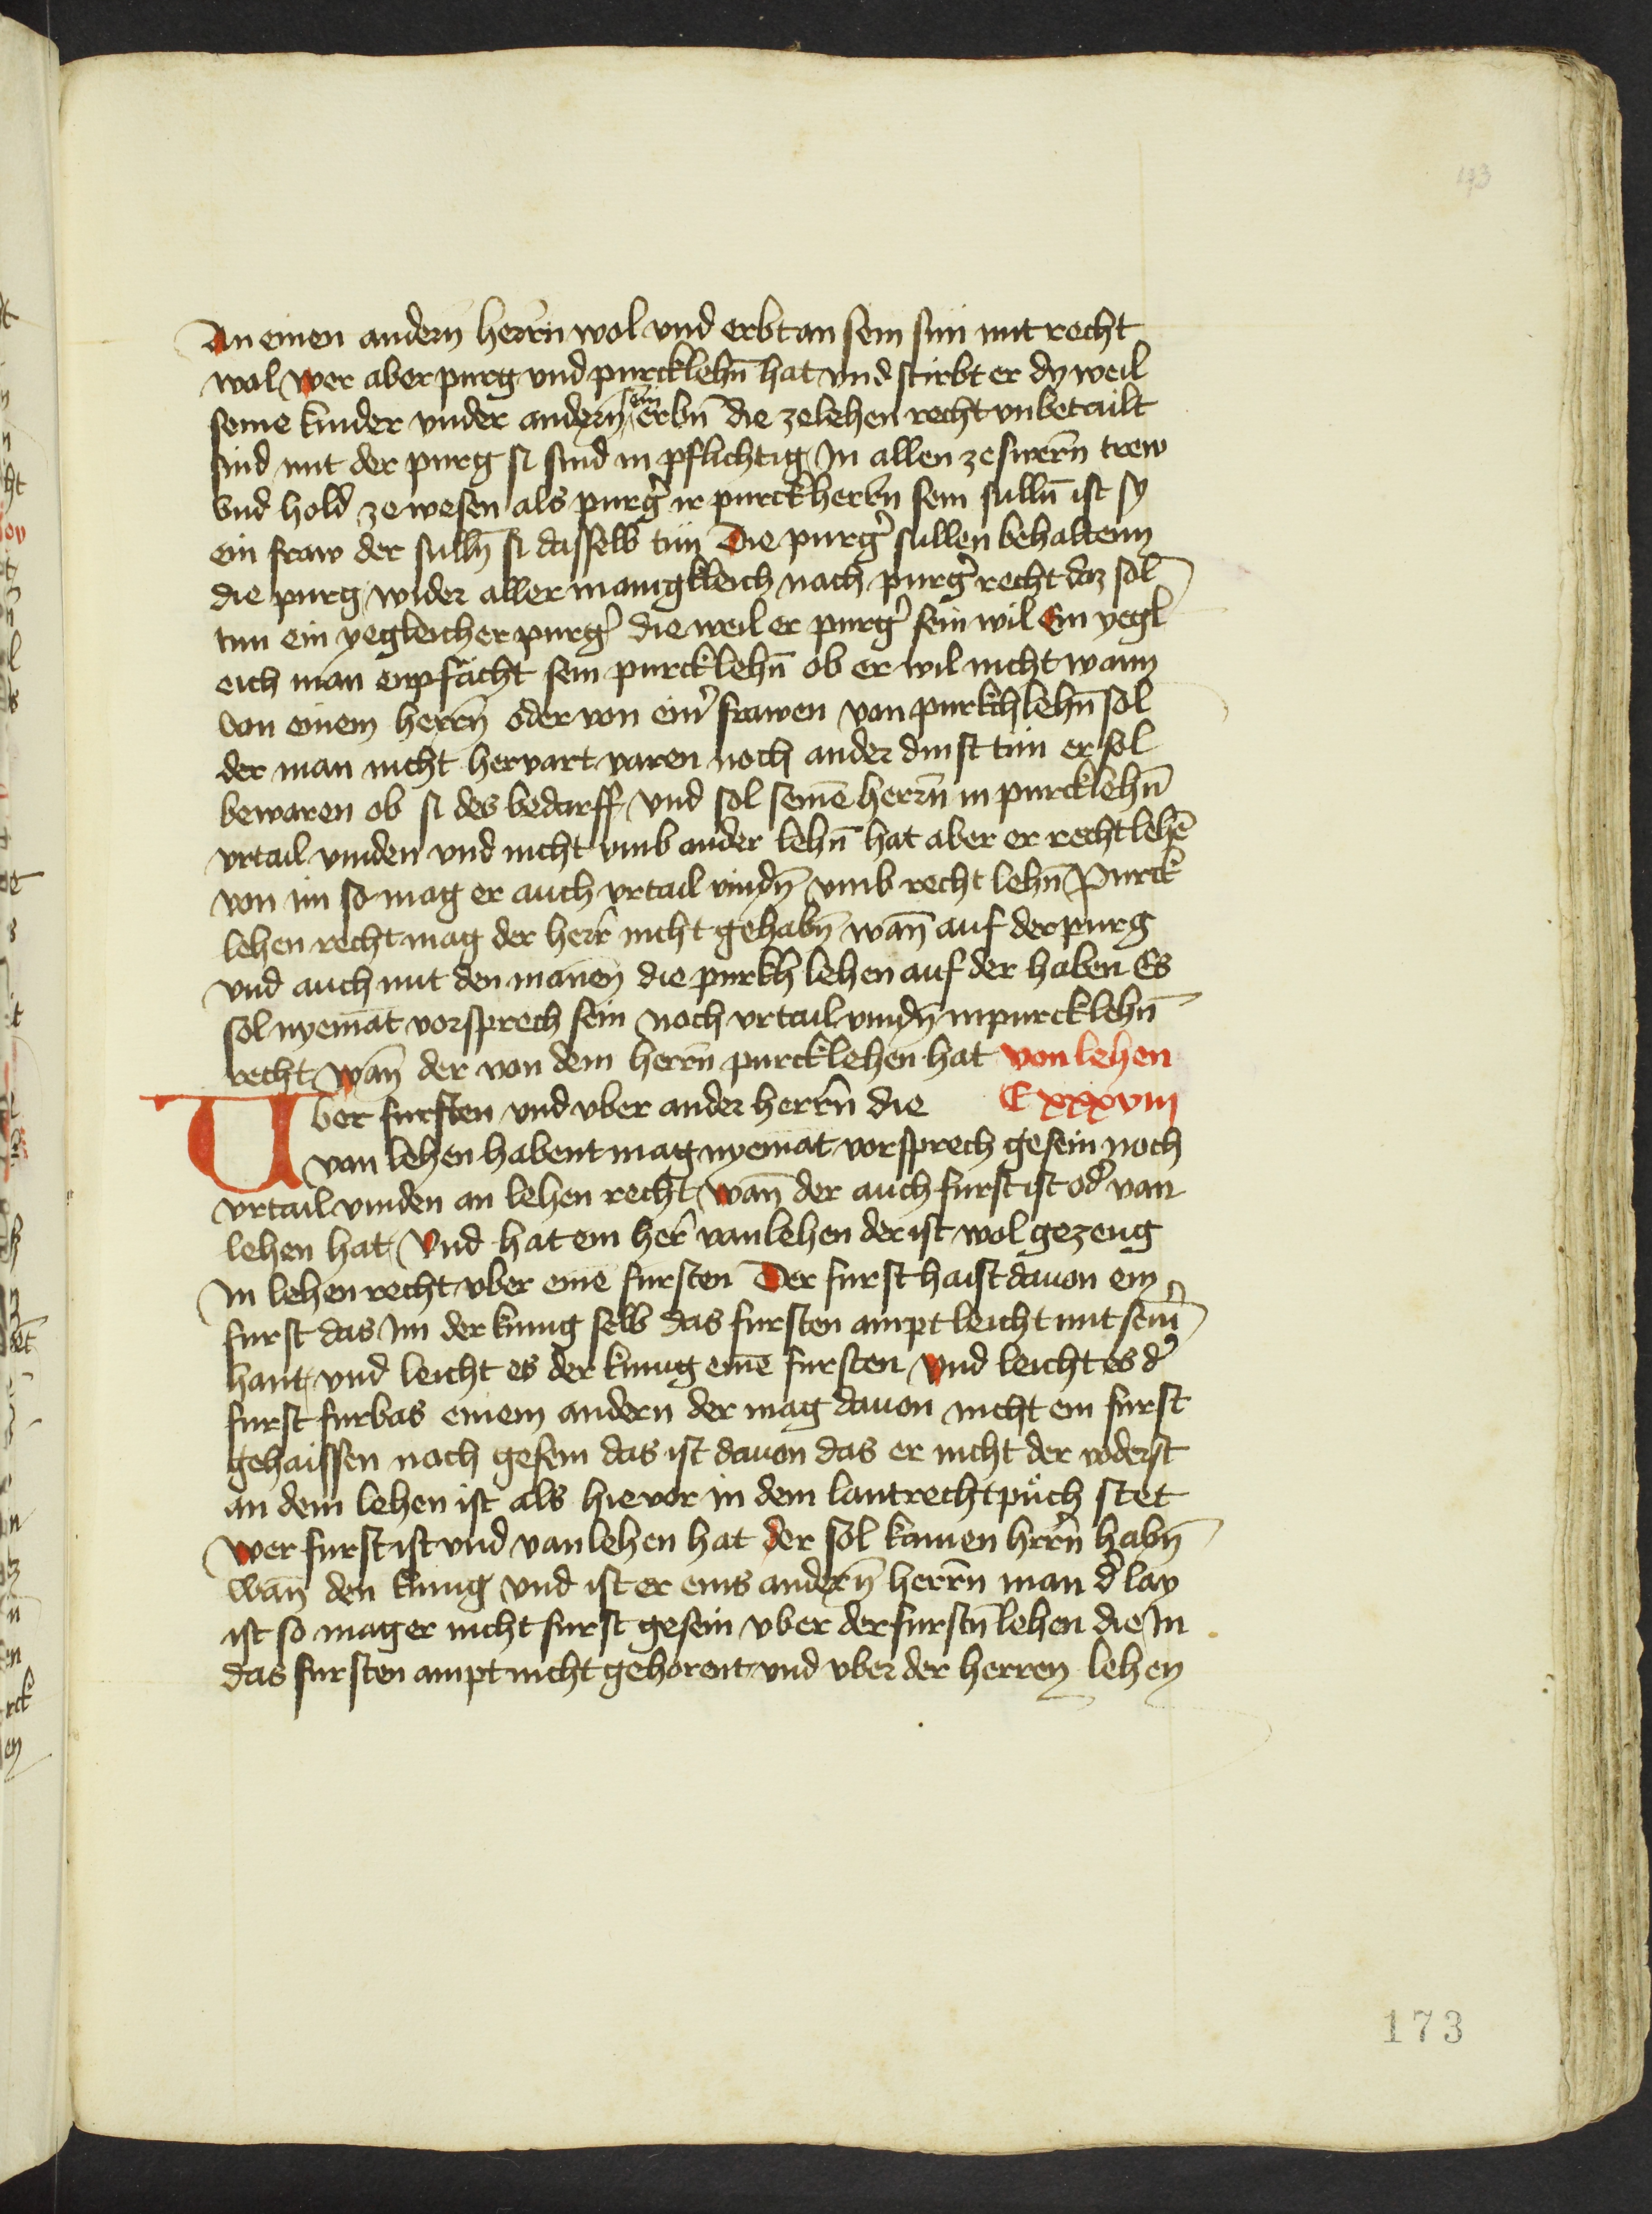 43
An einen andern̄ herr̄n wol vnd erbt an sein sun mit recht
wol wer aber purg vnd purcklehn̄ hat vnd stirbt er dy weil
seine kinder vnder andern̄ sein erbn̄ die ze lehen recht vnbetailt
sind mit der purg si sind in pflichtig in allen ze swern̄ trew
vnd hold ze wesen als purg͛ ir purckherbn̄ sein sulln̄ ist sy
ein fraw der sulln̄ si dasselb tun Die purg͛ sullen behaltenn
die purg wider aller manigkleich nach purg͛ recht daz sol
tun ein yegleicher purg͛ die weil er purg͛ sein wil Ein yegl
eich man enpfächt sein purcklehn̄ ob er wil nicht wann
von einem herrn̄ oder von ein͛ frawen van purckhlehn̄ sol
der man nicht hervart varen noch ander dinst tun er sol
bewaren ob si des bedarff vnd sol seinē herrn̄ in purcklehn̄
vrtail vinden vnd nicht vmb ander lehn̄ hat aber er recht lehē
von im so mag er auch vrtail vindn̄ vmb recht lehn̄ Purck
lehen recht mag der herr nicht gehabn̄ wan̄ auf der purg
vnd auch mit den mannē die purkh lehen auf der haben Es
sol nyemāt vorsprech sein noch vrtail vindn̄ in purcklehn̄
recht wan̄ der von dem herrn̄ purcklehen hat von lehen
Vber fursten vnd vber ander herrn̄ die Cxxxviii
van lehen habent mag nyemāt vorsprech gesein noch
vrtail vinden an lehen recht wan̄ der auch furst ist od͛ van
lehen hat Vnd hat ein her͛ van lehen der ist wol gezeug
In lehen recht vber einē fursten Der furst haist dauon ein
furst das im der kunig selb das fursten ampt leicht mit sein͛
hant vnd leicht es der kunig einē fursten vnd leicht es d͛
furst furbas einem andern der mag dauon nicht ein furst
gehaissen noch gesein das ist dauon das er nicht der voderst
an dem lehen ist als hie vor in dem lantrechtpůch stet
Wer furst ist vnd van lehen hat der sol kainen hrrn̄ habn̄
wan̄ den kunig vnd ist er eins andern̄ herrn̄ man d͛ lay
ist so mag er nicht furst gesein vber der furstn̄ lehen die In
das fursten ampt nicht gehorent vnd vber der herren lehen
173